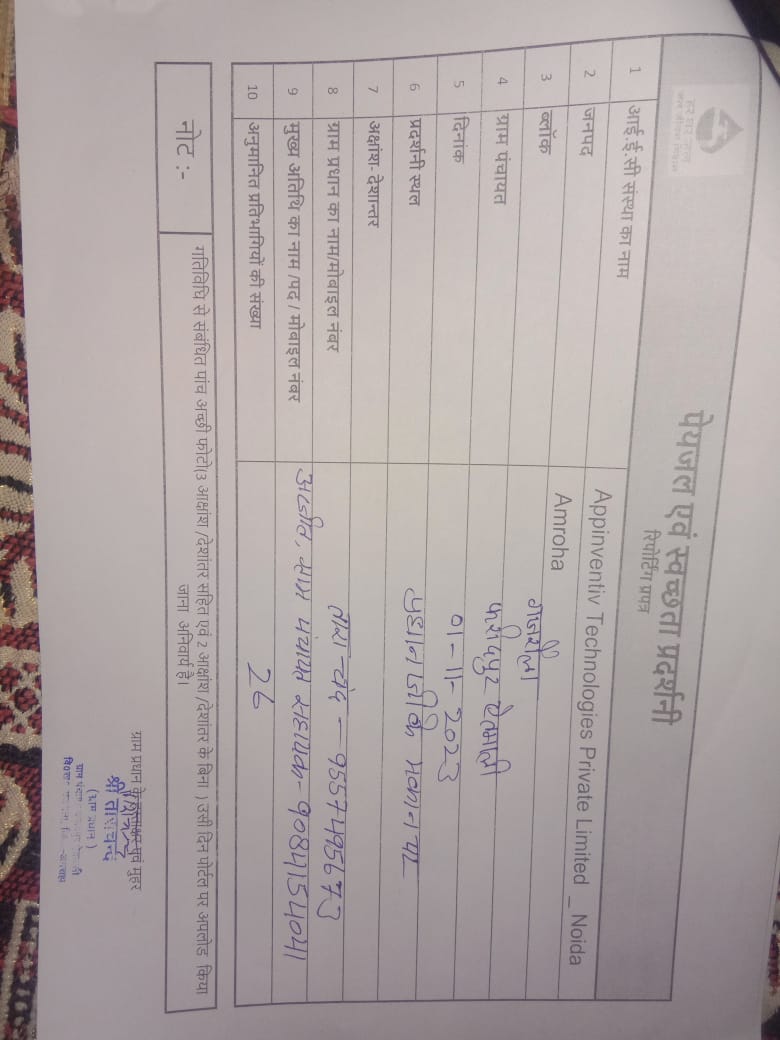 हर घर जल
जल जीवन मिशन
पेयजल एवं स्वच्छता प्रदर्शनी
रिपोर्टिंग प्रपत्र
1 आई.ई.सी संस्था का नाम Appinventiv Technologies Private Limited _ Noida
2 जनपद Amroha
3 ब्लॉक गजरौला
4 ग्राम पंचायत
5 दिनांक 01-11-2023
6 प्रदर्शनी स्थल प्रधान जी के मकान पर
7 अक्षांश-देशान्तर
8 ग्राम प्रधान का नाम/मोबाइल नंबर तारा चंद - 9557449567
9 मुख्य अतिथि का नाम /पद / मोबाइल नंबर ग्राम पंचायत सहायक - 9084154041
10 अनुमानित प्रतिभागियों की संख्या 26
नोट :- गतिविधि से संबंधित पांच अच्छी फोटो(3 आक्षांश /देशांतर सहित एवं 2 आक्षांश /देशांतर के बिना ) उसी दिन पोर्टल पर अपलोड किया
जाना अनिवार्य है।
ग्राम प्रधान के हस्ताक्षर एवं मुहर
श्री ताराचन्द
(ग्राम प्रधान)
ग्राम